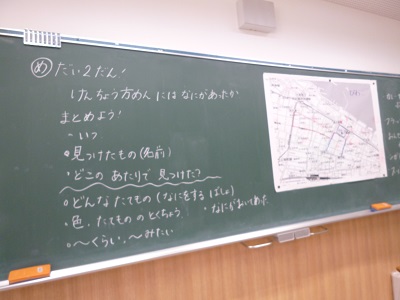 め だい2だん!
けんちょう方めんにはなにがあったか
まとめよう!
・いつ
・見つけたもの(名前)
・どこのあたりで見つけた?
・どんなたてもの(なにをするばしょ)
・色、たてもののとくちょう ・なにがおいてあった
・〜くらい、〜みたい